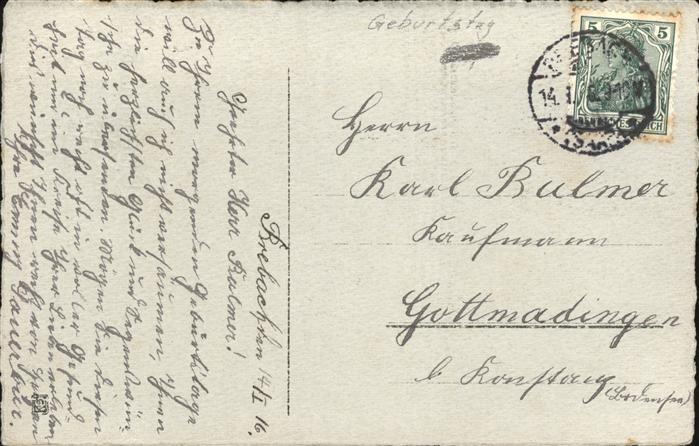 Geburtstag
5 5
Herrn
Karl Bulmer
Kaufmann
Gottmadingen
b. Konstanz
(Bodensee)
Brebach den 14/I 16.
Geehrter Herr Bulmer!
Zu Ihrem morgenden Geburtstage
will auch ich nicht versäumen, Ihnen
die herzlichsten Glück und Segenswün-
sche zu übersenden. Mögen Sie diesen
Tag noch recht oft in voller Gesund-
heit und im Kreise Ihrer Lieben erleben
dies wünscht Ihnen recht von Herzen